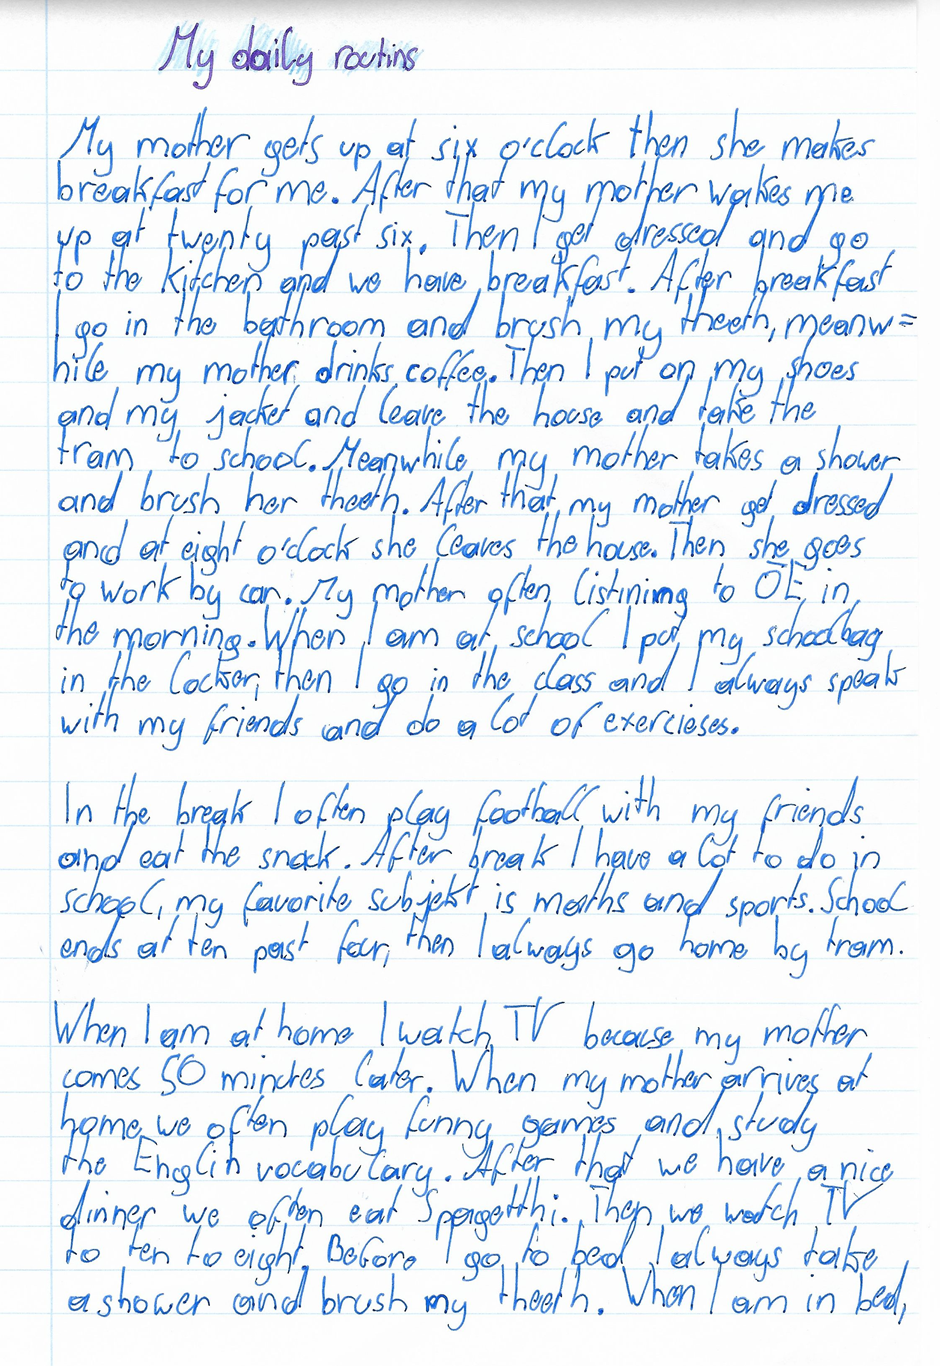 My daily routins
My mother gets up at six o'clock then she makes
breakfast for me. After that my mother wakes me
up at twenty past six. Then I get dressed and go
to the kitchen and we have breakfast. After breakfast
I go in the bathroom and brush my theeth, meanw=
hile my mother drinks coffee. Then I put on my shoes
and my jacket and leave the house and take the
tram to school. Meanwhile my mother takes a shower
and brush her theeth. After that my mother get dressed
and at eight o'clock she leaves the house. Then she goes
to work by car. My mother often listining to ÖE in
the morning. When I am at school I put my schoolbag
in the locker, then I go in the class and I always speak
with my friends and do a lot of exercieses.
In the break I often play football with my friends
and eat the snack. After break I have a lot to do in
school, my favorite subjekt is maths and sports. School
ends at ten past four, then I always go home by tram.
When I am at home I watch TV because my mother
comes 50 minutes later. When my mother arrives at
home we often play funny games and study
the Englih vocabulary. After that we have a nice
dinner we often eat Spagetthi. Then we watch TV
to ten to eight. Before I go to bed I always take
a shower and brush my theeth. When I am in bed,